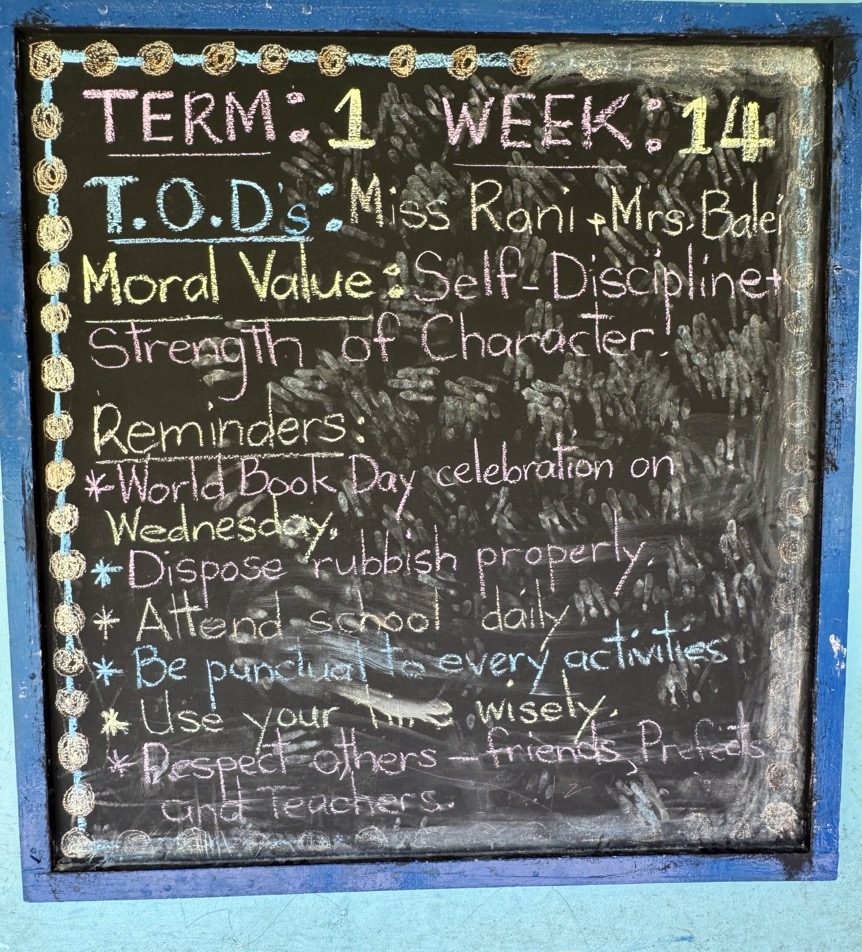 TERM: 1 WEEK: 14
T.O.D's: Miss Rani + Mrs. Balei
Moral Value: Self-Discipline +
Strength of Character!
Reminders:
* World Book Day celebration on
Wednesday.
* Dispose rubbish properly.
* Attend school daily
* Be punctual to every activities
* Use your time wisely.
* Respect others - friends, Prefects
and Teachers.